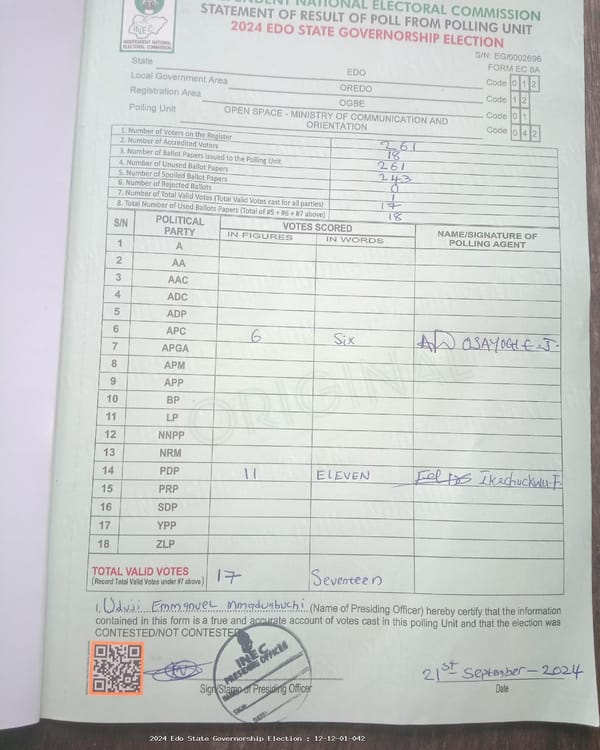 INDEPENDENT NATIONAL ELECTORAL COMMISSION
STATEMENT OF RESULT OF POLL FROM POLLING UNIT
2024 EDO STATE GOVERNORSHIP ELECTION
INEC
INDEPENDENT NATIONAL
ELECTORAL COMMISSION
S/N: EG/0002696
FORM EC 8A
State EDO Code 0 1 2
Local Government Area OREDO Code 1 2
Registration Area OGBE Code 0 1
Polling Unit OPEN SPACE - MINISTRY OF COMMUNICATION AND ORIENTATION Code 0 4 2
1. Number of Voters on the Register 261
2. Number of Accredited Voters 18
3. Number of Ballot Papers issued to the Polling Unit 261
4. Number of Unused Ballot Papers 243
5. Number of Spoiled Ballot Papers 0
6. Number of Rejected Ballots 1
7. Number of Total Valid Votes (Total Valid Votes cast for all parties) 17
8. Total Number of Used Ballots Papers (Total of #5 + #6 + #7 above) 18
S/N POLITICAL PARTY VOTES SCORED NAME/SIGNATURE OF POLLING AGENT
IN FIGURES IN WORDS
1 A
2 AA
3 AAC
4 ADC
5 ADP
6 APC 6 Six OSAYOGHE .J.
7 APGA
8 APM
9 APP
10 BP
11 LP
12 NNPP
13 NRM
14 PDP 11 ELEVEN Ikechuckwu .F.
15 PRP
16 SDP
17 YPP
18 ZLP
ORIGINAL
TOTAL VALID VOTES 17 Seventeen
(Record Total Valid Votes under #7 above)
I, Uduji Emmanuel Mmaduabuchi (Name of Presiding Officer) hereby certify that the information
contained in this form is a true and accurate account of votes cast in this polling Unit and that the election was
CONTESTED/NOT CONTESTED
INEC
PRESIDING OFFICER
SIGN:
DATE:
21st September - 2024
Sign/Stamp of Presiding Officer Date
2024 Edo State Governorship Election : 12-12-01-042